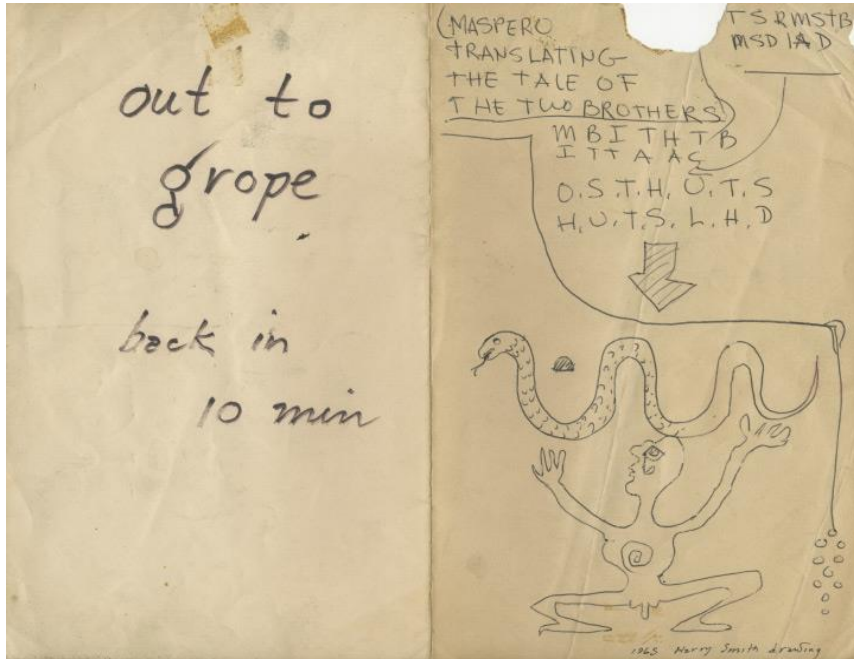 out to
grope
back in
10 min
(MASPERO
TRANSLATING
THE TALE OF
THE TWO BROTHERS)
TSRMSTB
MSDIAD
MBITHTB
ITTAAS
O.S.T.H.U.T.S
H.U.T.S.L.H.D
1965 Harry Smith drawing